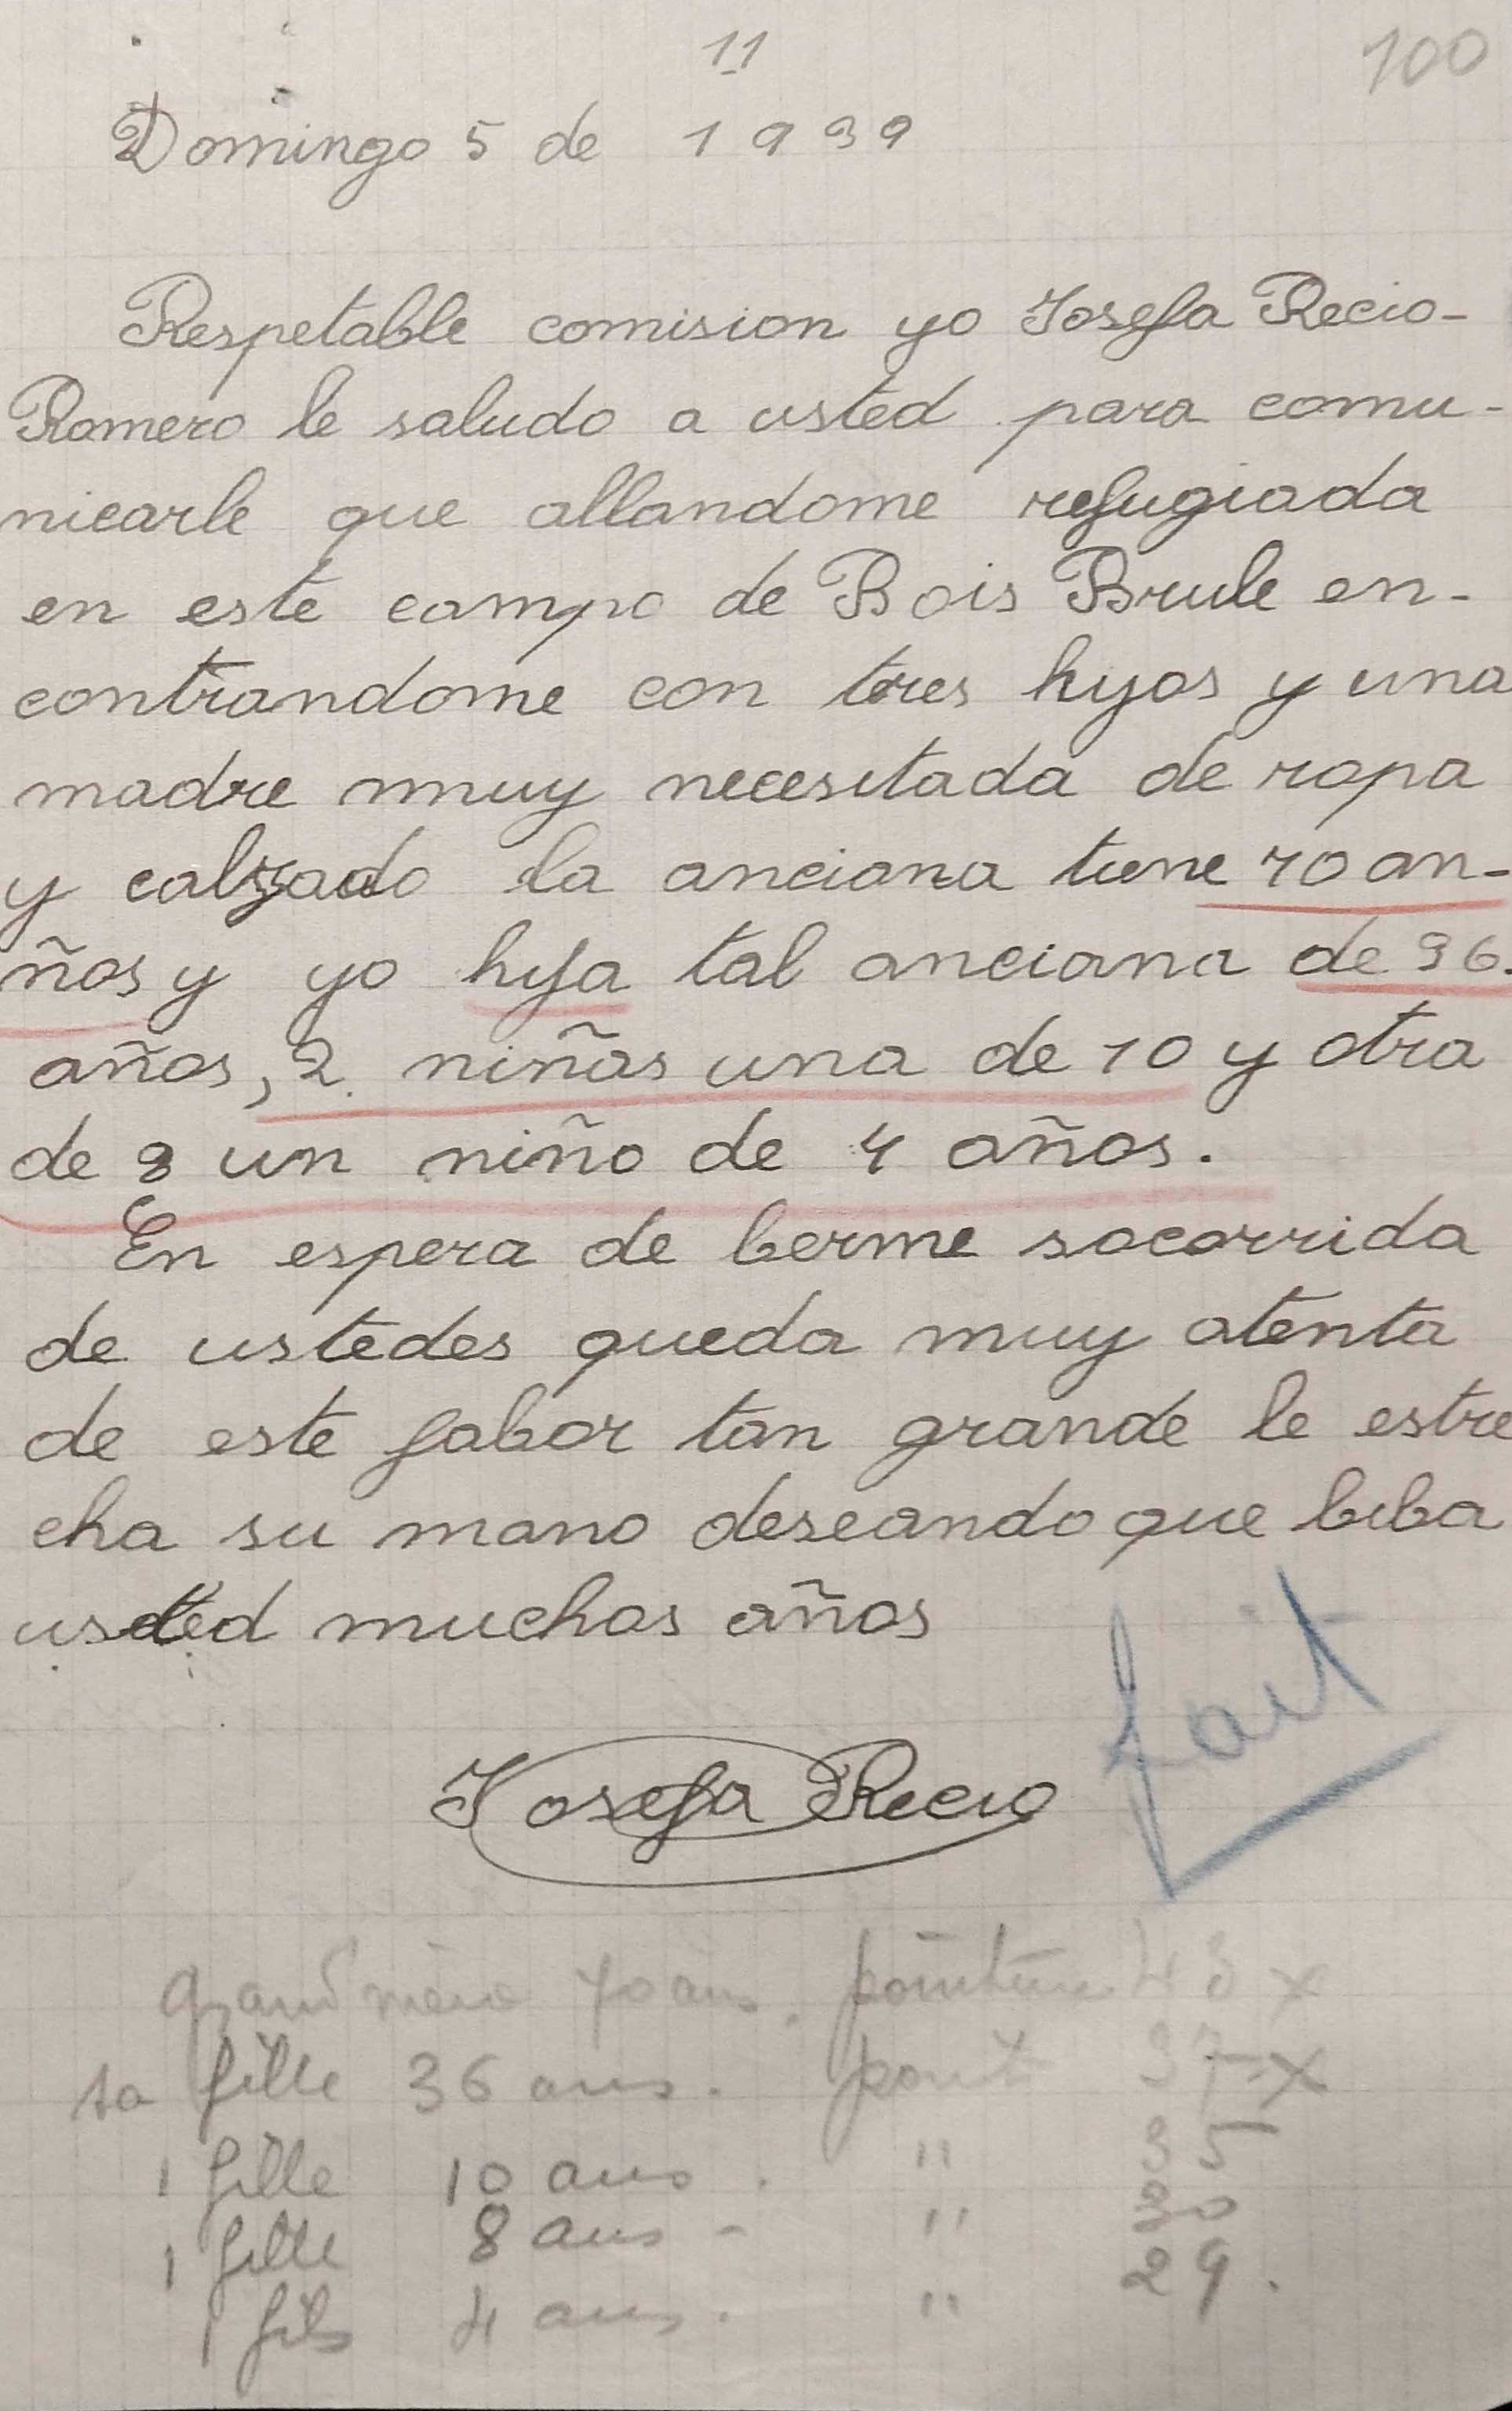 11
100
Domingo 5 de 1939
Respetable comision yo Josefa Recio-
Romero le saludo a usted para comu-
nicarle que allandome refugiada
en este campo de Bois Brule en-
contrandome con tres hijos y una
madre muy necesitada de ropa
y calzado la anciana tiene 70 an-
ños y yo hija tal anciana de 36.
años, 2 niñas una de 10 y otra
de 8 un niño de 4 años.
En espera de berme socorrida
de ustedes queda muy atenta
de este fabor tan grande le estre
cha su mano deseando que biba
usted muchos años
fait
Josefa Recio
Grand'mère 70 ans. pointure 43 x
sa fille 36 ans. point 37 x
1 fille 10 ans. " 35
1 fille 8 ans - " 30
1 fils 4 ans. " 29.